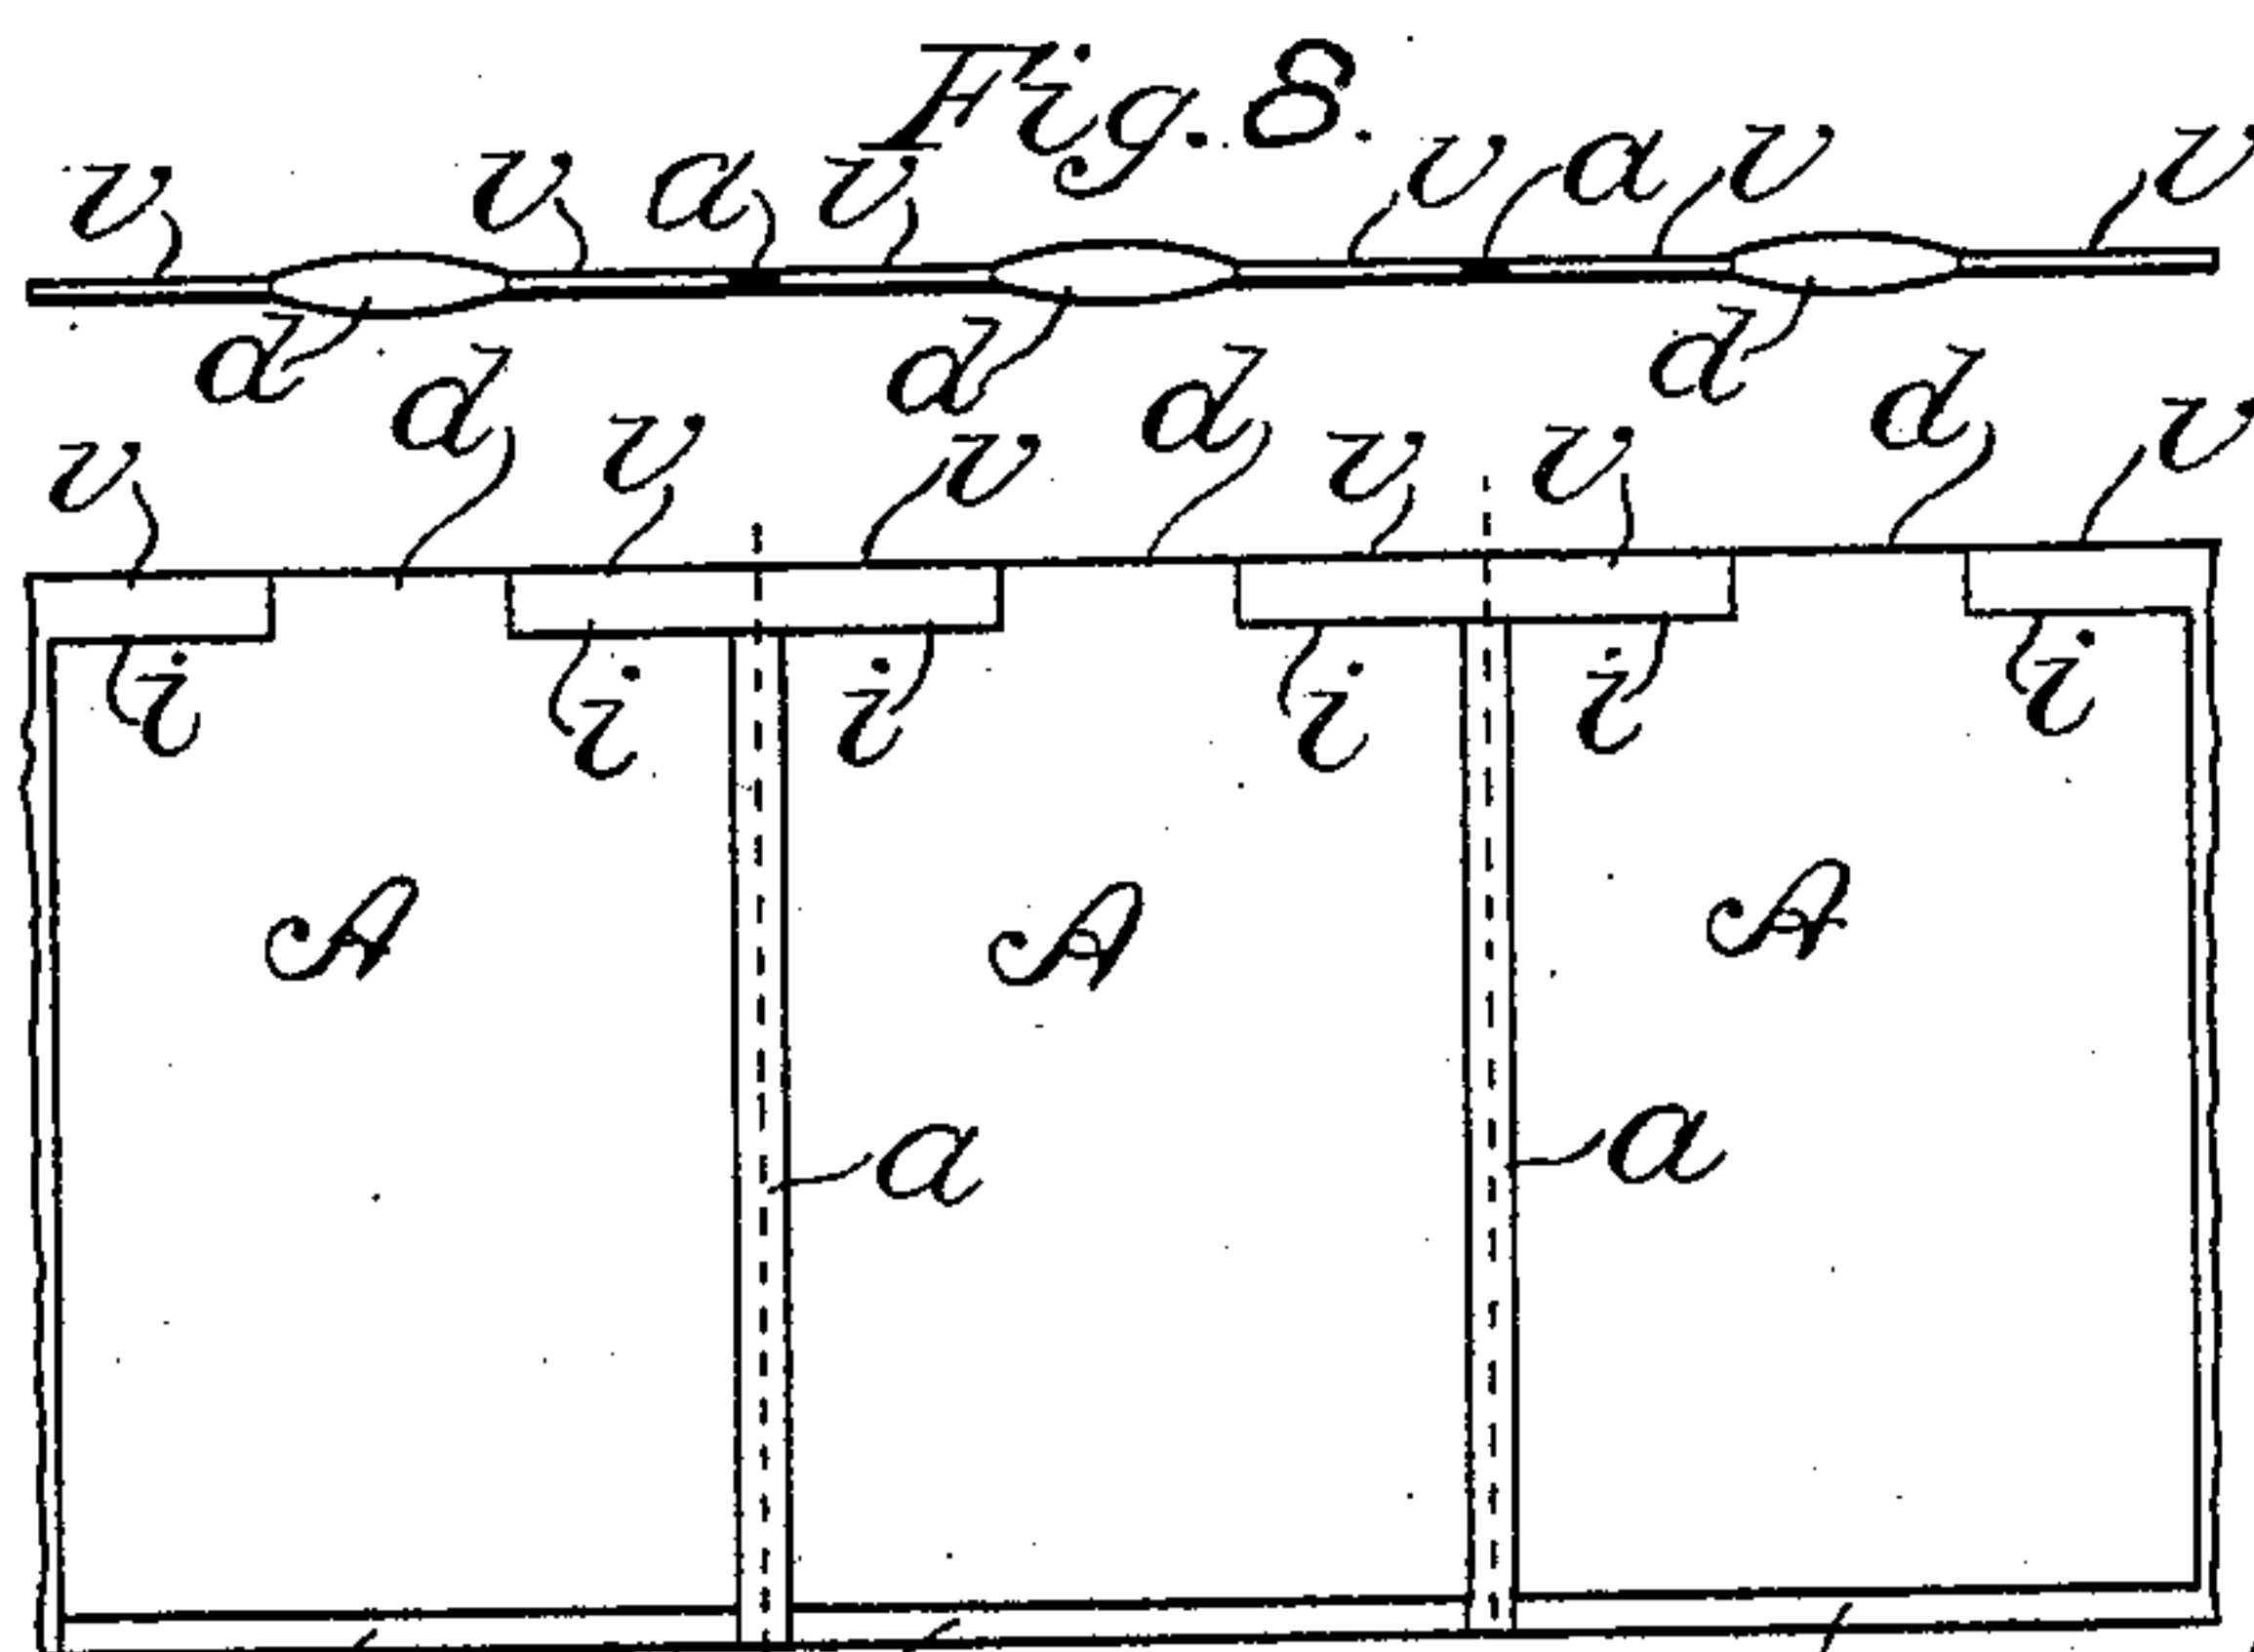 Fig. 8.
v v a v v a v v
d d d
v d v v d v v d v
i i i i i i
A A A
a a